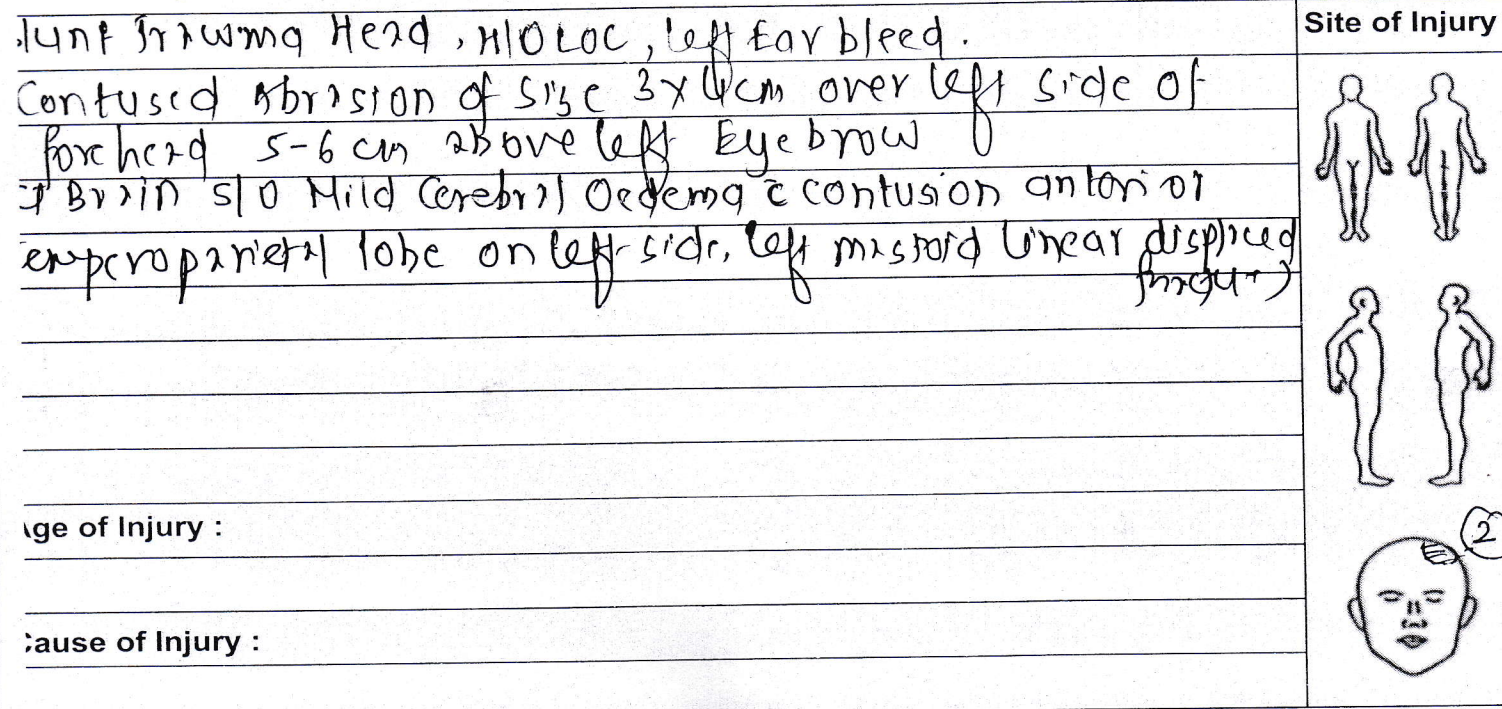 lunt Trauma Head, H/O LOC, left Ear bleed.
Site of Injury
Contused Abrasion of size 3x4cm over left side of
forehead 5-6 cm above left Eyebrow
T Brain S/O Mild Cerebral Oedema c̄ contusion anterior
emperoparietal lobe on left side, left mastoid linear displaced
fracture
ge of Injury :
2
ause of Injury :